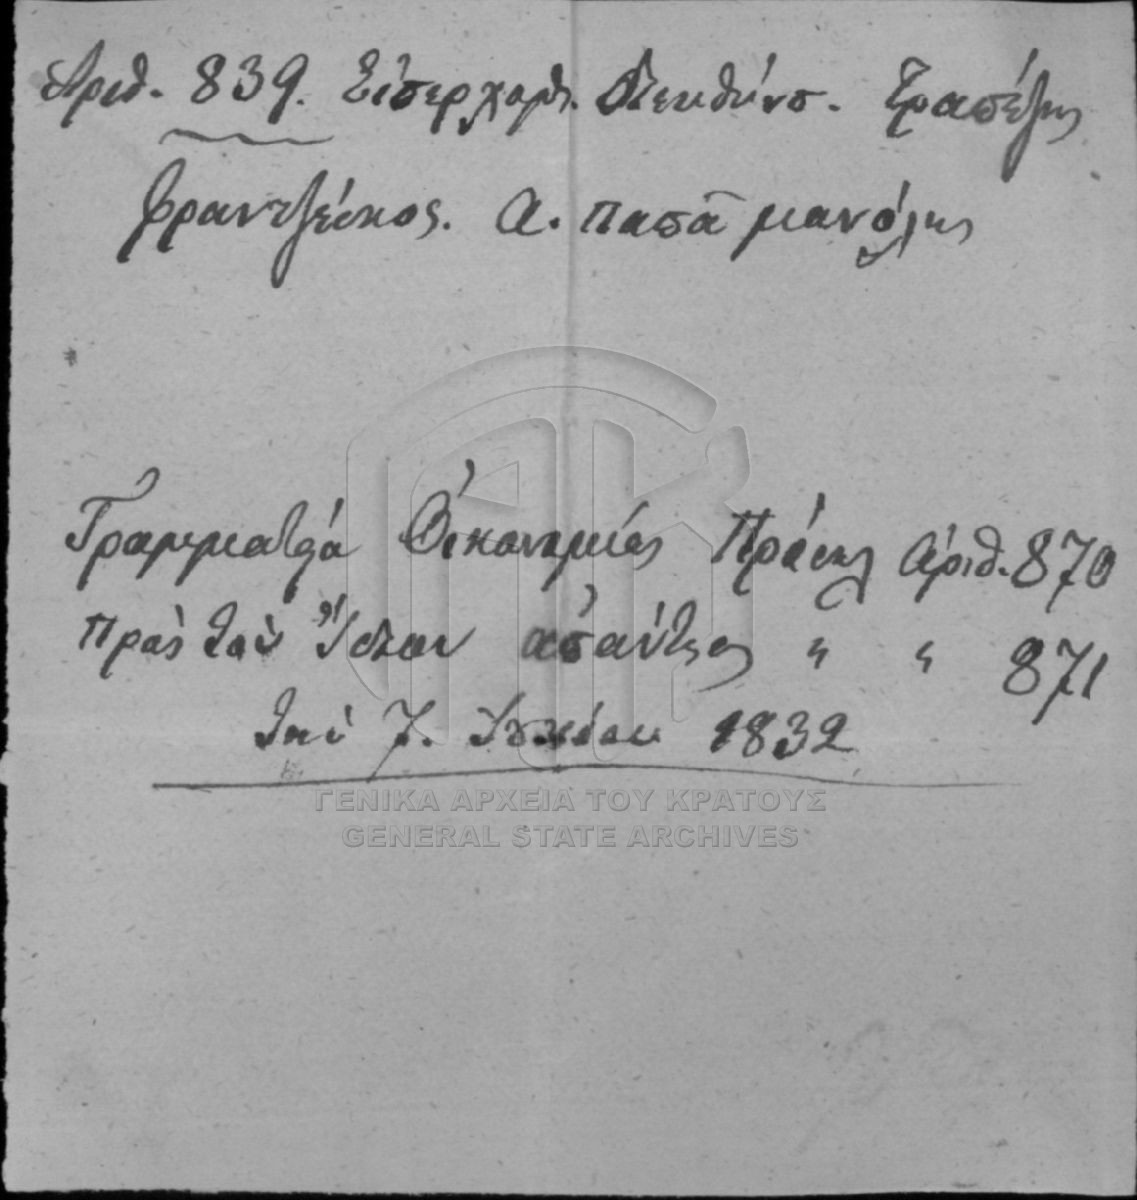 Αριθ. 839. Εἰσερχομ. Διευθύνσ. Τραπέζης
Φραντζέσκος. Α. Παπᾶ μανόλης
Γραμματεία Οἰκονομίας Πρᾶξις ἀριθ. 870
Πρὸς τὸν Ἴδιον ἀπάντησις " " 871
τῇ 7. Ἰουνίου 1832
ΓΕΝΙΚΑ ΑΡΧΕΙΑ ΤΟΥ ΚΡΑΤΟΥΣ
GENERAL STATE ARCHIVES